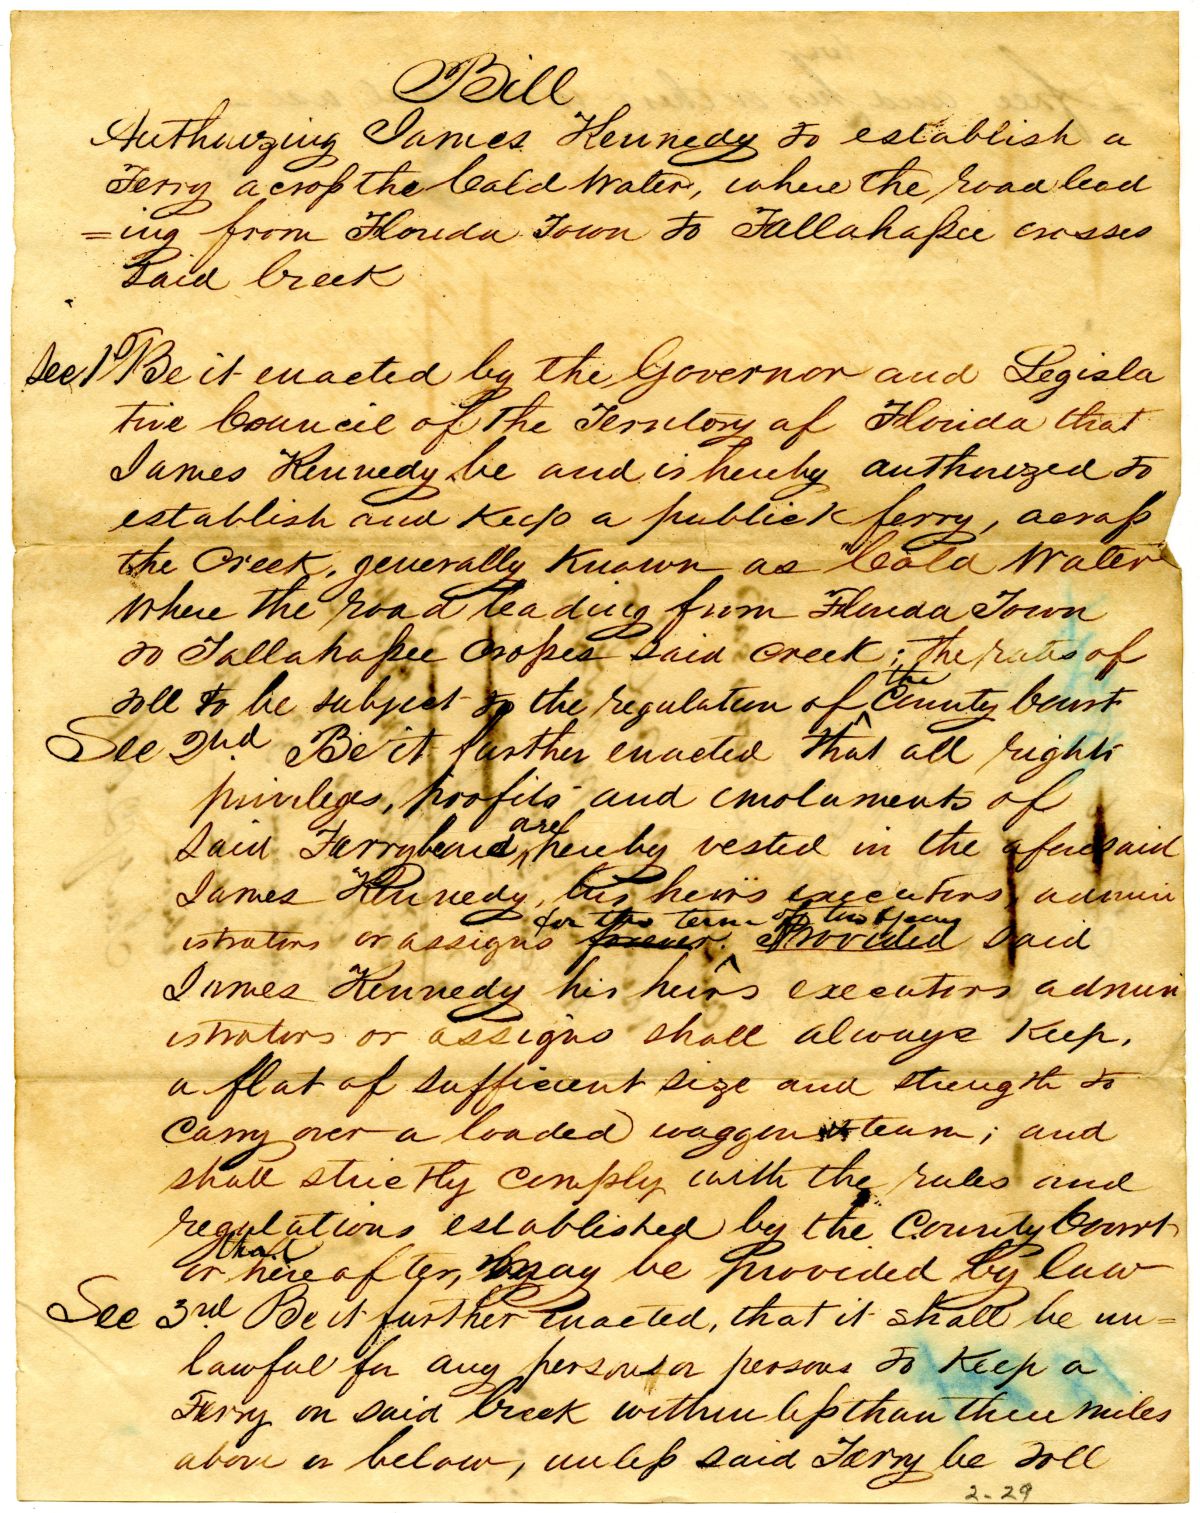 Bill
Authorizing James Kennedy to establish a
Ferry across the Cold Water, where the road lead
=ing from Florida Town to Tallahassee crosses
said Creek
Sec 1st Be it enacted by the Governor and Legisla
tive Council of the Territory of Florida that
James Kennedy be and is hereby authorized to
establish and keep a publick ferry, across
the Creek, generally known as Cold Water
where the road leading from Florida Town
to Tallahassee crosses said creek; the rates of
toll to be subject to the regulation of the County Court
Sec 2nd Be it further enacted that all rights
privileges, profits and emoluments of
said Ferry are hereby vested in the aforesaid
James Kennedy, his heirs executors, admin
istrators or assigns forever. for the term of two years Provided said
James Kennedy his heirs executors admin
istrators or assigns shall always keep,
a flat of sufficient size and strength to
carry over a loaded waggon & team; and
shall strictly comply with the rules and
regulations established by the County Court
or that hereafter, may be provided by law
Sec 3rd Be it further enacted, that it shall be un=
lawful for any person or persons to keep a
Ferry on said Creek within less than three miles
above or below, unless said Ferry be toll
2-29